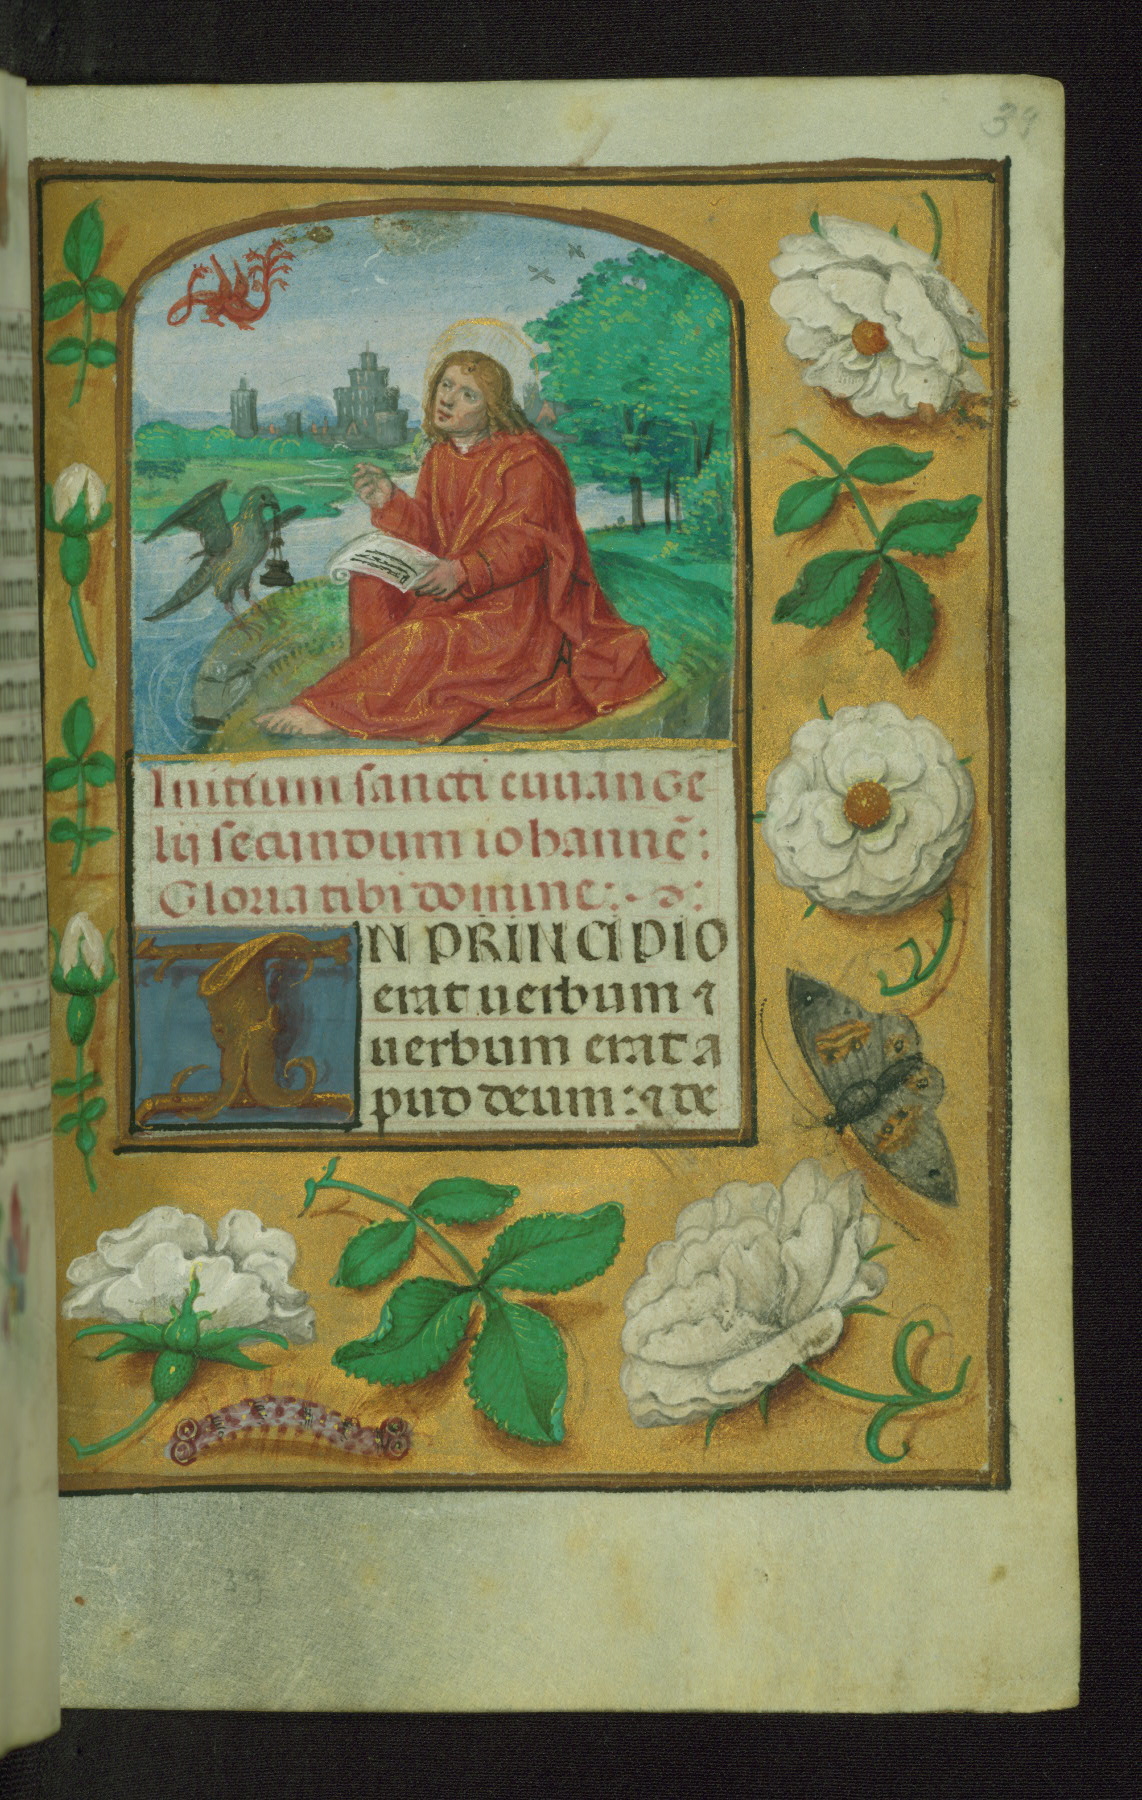 39
Initium sancti euuange
lii secundum iohannē:
Gloria tibi domine:
IN PRINCIPIO
erat uerbum ⁊
uerbum erat a
pud deum: ⁊ de